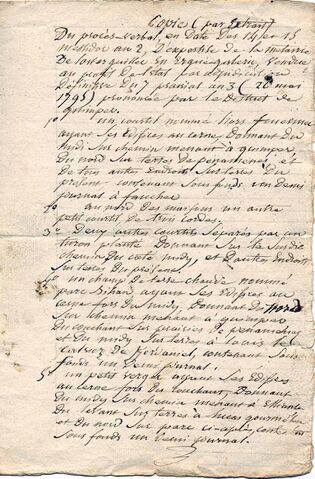 Copie (par Extrait)
Du procès-verbal, en Date des 14 et 15
messidor an 2, d'expertise de la métairie
De en Ergué-gabéric, vendue
au profit de l'état par adjudication
Définitive du 7 prairial an 3 (26 mai
1795) prononcée par le District de
quimper
1° un courtil nommé Liors feunteun
ayant ses édifices au cerne, Donnant du
midi sur chemin menant à quimper
du nord sur terres de penanreun, et
de trois autres Endroits sur terres Du
présent contenant sous fonds un Demi
journal à faucher
2° au nord des un autre
petit courtil de trois cordes
3° Deux autres courtils séparés par un
turon planté Donnant sur le susdit
chemin Du côté midy, et D'autres Endroits
sur terres du présent.
4° un champ De terre chaude nommé
parc Bihan, ayant ses Edifices au
cerne fors du midy, Donnant du Nord
sur chemin menant à
du couchant sur prairies de
et Du midy sur terres à Louis le
de Kerdaniel, contenant sous
fonds un Demi journal.
5° un petit verger ayant ses édifices
au cerne fors du couchant, Donnant
du midy sur chemin menant à
De levant sur terres à
et du nord sur parc ci-après, contenant
sous fonds un Demi journal.